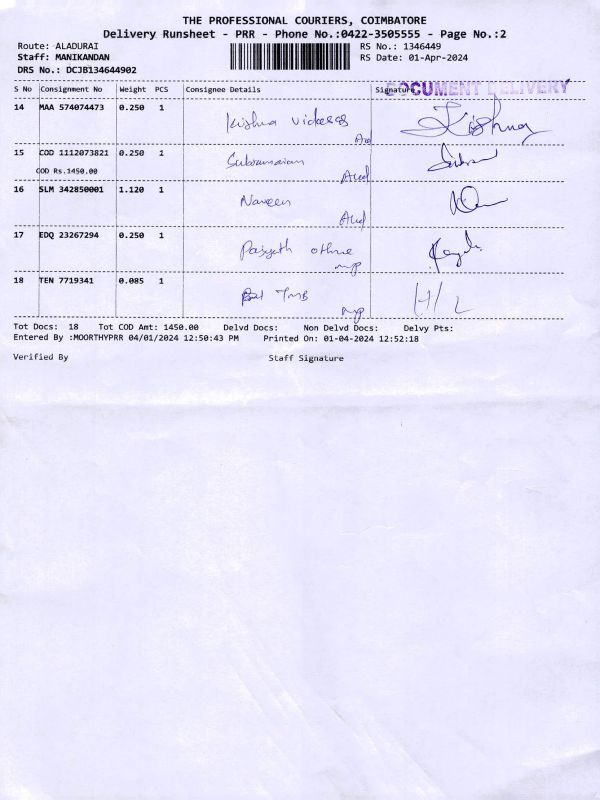 THE PROFESSIONAL COURIERS, COIMBATORE
Delivery Runsheet - PRR - Phone No.:0422-3505555 - Page No.:2
Route: ALADURAI RS No.: 1346449
Staff: MANIKANDAN RS Date: 01-Apr-2024
DRS No.: DCJB134644902
DOCUMENT DELIVERY
S No Consignment No Weight PCS Consignee Details Signature
14 MAA 574074473 0.250 1
Kishna
Kishna
15 COD 1112073821 0.250 1
COD Rs.1450.00
Subramaniam
16 SLM 342850001 1.120 1
Naveen
17 EDQ 23267294 0.250 1
18 TEN 7719341 0.085 1
TMB
H/L
Tot Docs: 18 Tot COD Amt: 1450.00 Delvd Docs: Non Delvd Docs: Delvy Pts:
Entered By :MOORTHYPRR 04/01/2024 12:50:43 PM Printed On: 01-04-2024 12:52:18
Verified By Staff Signature